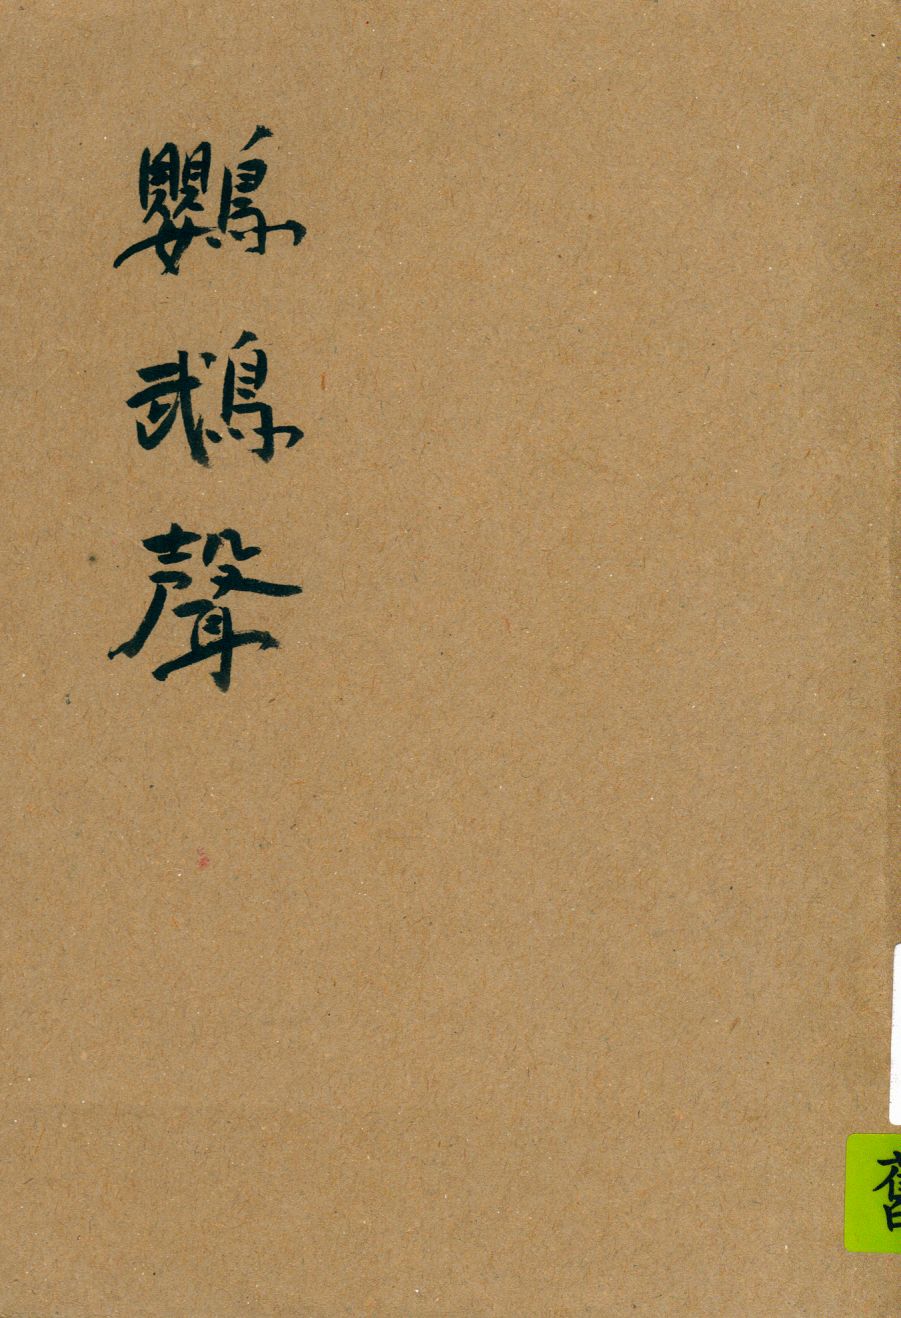 鸚鵡聲
舊